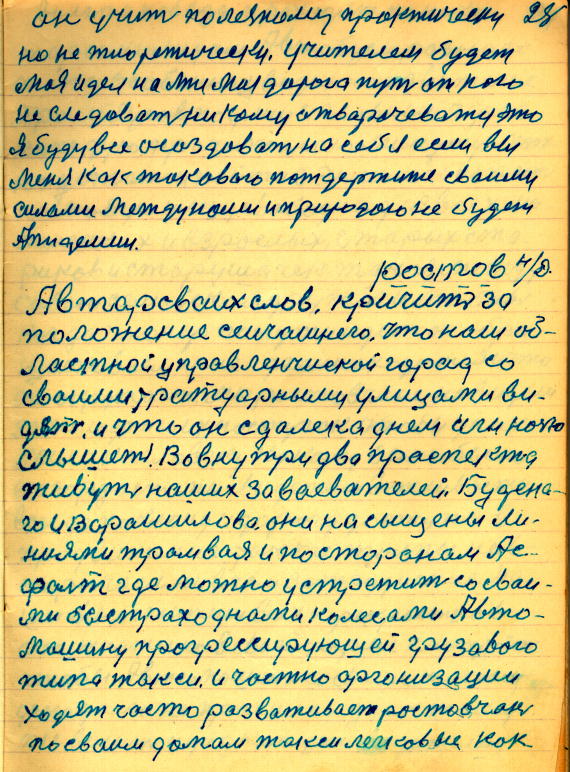 он учит полезному практически 28
но не тиоретически. Учителем будет
моя идея на эти мая дорога пут от кого
не следоват никому отварачеватця это
Я буду все осаздоват на себя если вы
меня как такового потдержите сваими
силами между нами и природою не будет
Эпидемии.
ростов н/д.
Автар сваих слов, кричит за
положение сеичашнего, что наш об-
ластной управленчиской горад со
сваими тратуарными улицами ви-
дят, и что он сдалека днем или ночю
слышет. Вовнутри два праспекта
живут наших заваевателей Будена-
го и Варашилова они насыщены ли-
ниями трамвая и посторанам Ас-
фалт где можно устретит со сваи-
ми быстраходнами колесами Авто-
машину прогрессирующей грузавого
типа такси, и частно организации
ходят часто разваживает ростовчан
по сваим домам такси легковые как